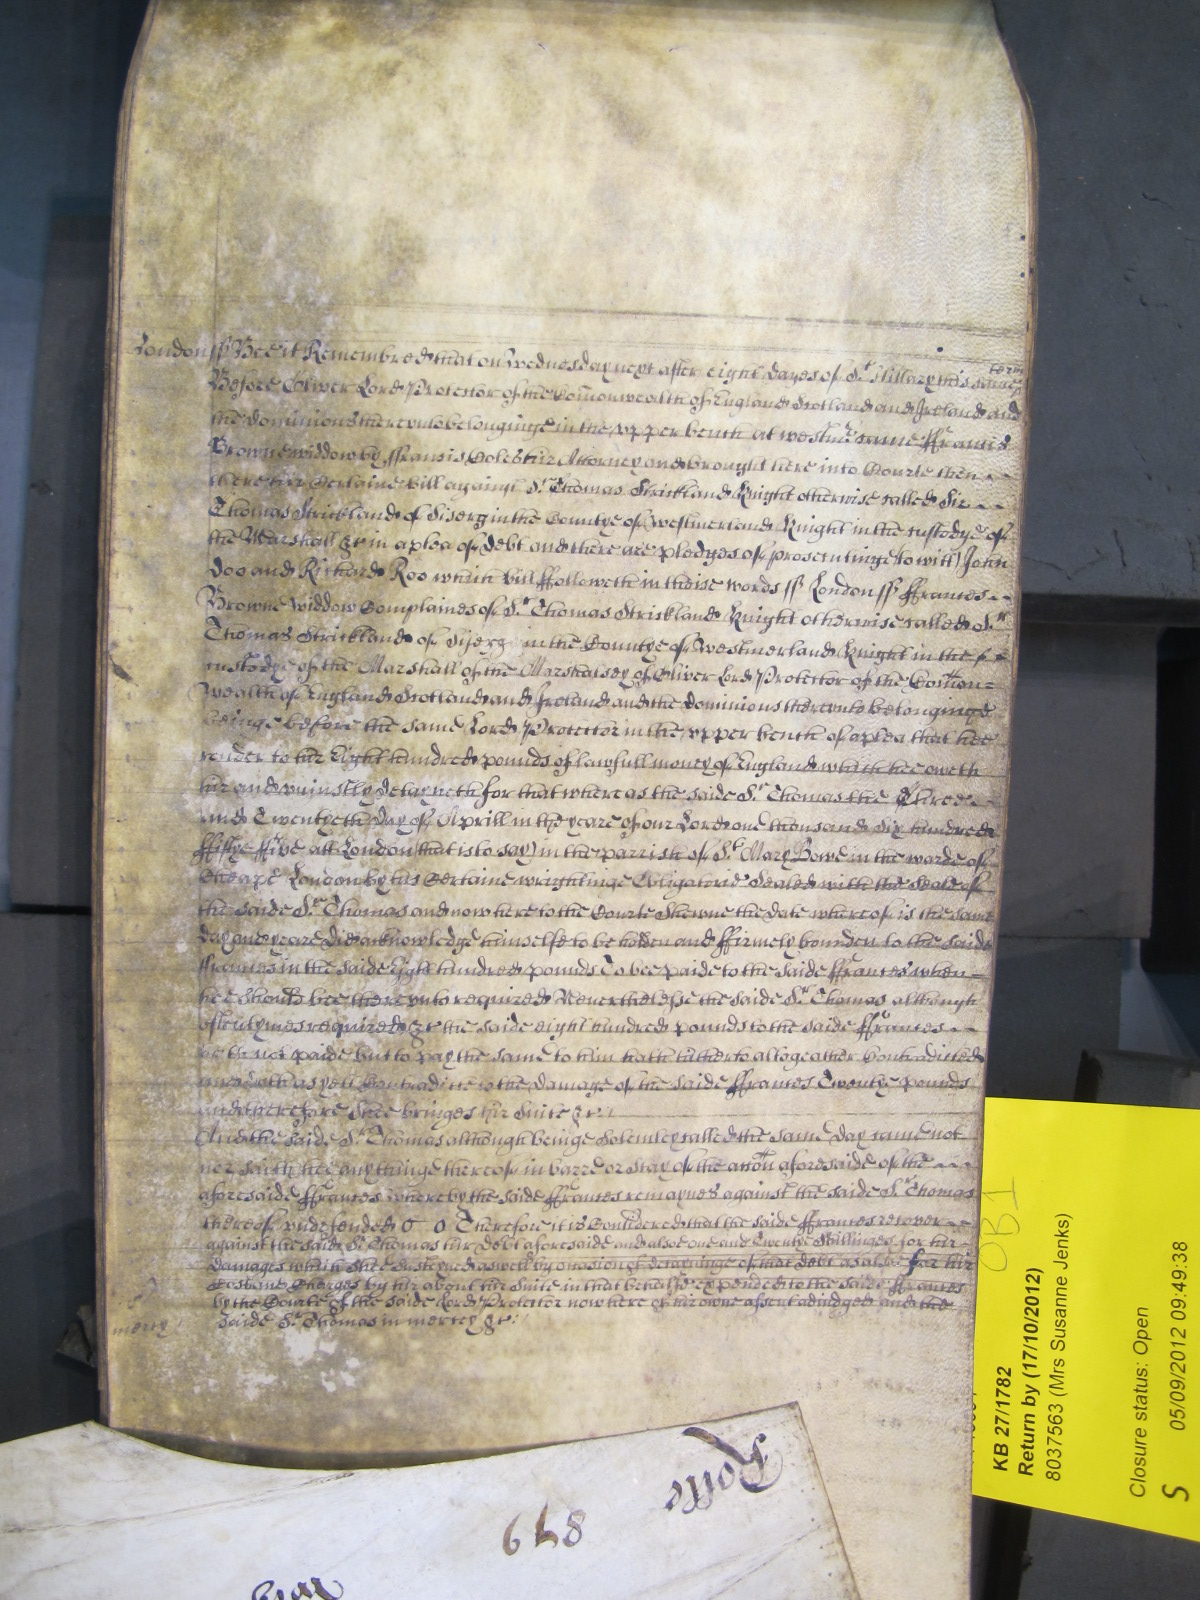 London ss Bee it Remembred that on Wednesday next after eight dayes of St Hillary this same terme
Before Oliver Lord Protector of the Comonwealth of England Scotland and Ireland and
the dominions thereunto belonginge in the upper bench at Westmr came ffrances
Browne widdow by ffrancis Coles hir Attorney and brought here into Courte then
there hir Certaine Bill against Sr Thomas Strickland Knight otherwise called Sir
Thomas Strickland of Siserg in the Countye of Westmerland Knight in the custodye of
the Marshall &c in a plea of Debt and there are pledges of prosecutinge to witt John
Doo and Richard Roo which bill ffolloweth in theise words ss London ss ffrances
Browne Widdow Complaines of Sr Thomas Strickland Knight otherwise called Sr
Thomas Strickland of Siserg in the Countye of Westmerland Knight in the
custodye of the Marshall of the Marshalsey of Oliver Lord Protector of the Comon=
wealth of England Scotland and Ireland and the dominions thereunto belonginge
beinge before the same Lord Protector in the upper bench of a plea that hee
render to hir Eight hundred pounds of lawfull money of England which hee oweth
hir and uniustly detayneth for that whereas the saide Sr Thomas the Three
and Twentyeth day of Aprill in the yeare of our Lord one thousand six hundred
ffiftye ffive att London that is to say in the parrish of St Mary Bowe in the warde of
Cheape London by his Certaine wrightinge Obligatorie Sealed with the Seale of
the saide Sr Thomas and now here to the Courte Shewne the date whereof is the same
day and yeare did acknowledge himselfe to be holden and ffirmely bounden to the saide
ffrances in the saide Eight hundred pounds To bee paide to the saide ffrances when
hee should bee thereunto required Neverthelesse the saide Sr Thomas although
oftentymes required &c the saide eight hundred pounds to the saide ffrances
hath not paide but to pay the same to him hath hitherto altogeather Contradicted
and doth as yett Contradict to the damage of the saide ffrances Twenty pounds
and therefore Shee bringes hir Suite &c
And the saide Sr Thomas although beinge Solemley called the same day came not
nor saith hee any thinge thereof in barre or stay of the accon aforesaide of the
aforesaide ffrances whereby the saide ffrances remaynes against the saide Sr Thomas
thereof undefended Therefore it is Considered that the saide ffrances recover
against the saide Sr Thomas hir debt aforesaide and alsoe one and Twenty Shillinges for hir
damages which Shee Susteyned aswell by occasion of detayninge of that debt as alsoe for hir
Costs and Charges by hir about hir Suite in that behalfe expended to the saide ffrances
by the Courte of the saide Lord Protector now here of hir owne assent adiudged and the
saide Sr Thomas in mercey &c
mercy
Rolls
879
KB 27/1782
Return by (17/10/2012)
8037563 (Mrs Susanne Jenks)
Closure status: Open
05/09/2012 09:49:38
S
OB1